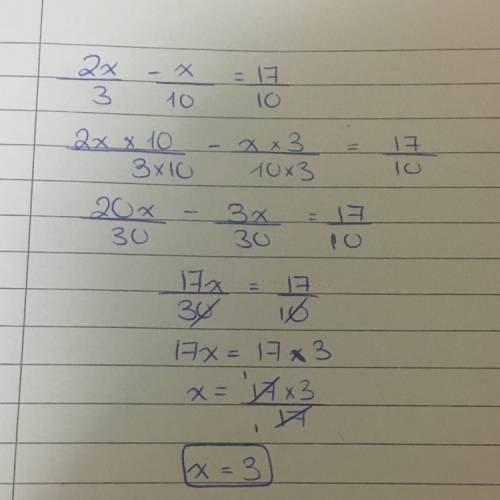 2x/3 - x/10 = 17/10
2x × 10/3×10 - x × 3/10×3 = 17/10
20x/30 - 3x/30 = 17/10
17x/30 = 17/10
17x = 17 × 3
x = 17 × 3/17
x = 3